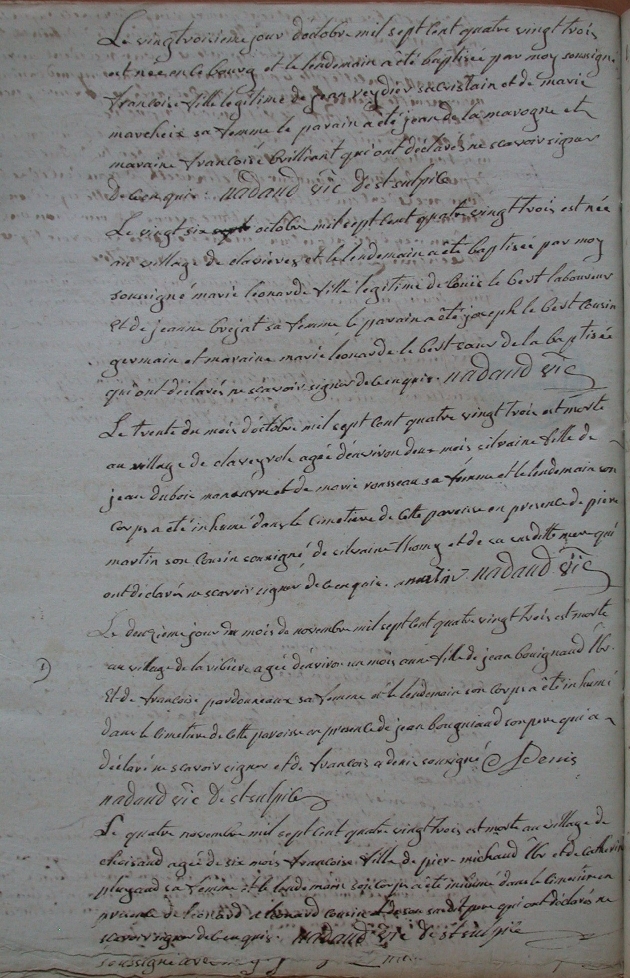 Le vingt troisieme jour d'octobre mil sept cent quatre vingt trois
est née en le bourg et le lendemain a été baptisée par moy soussigné
francoise fille legitime de jean veydier sacristain et de marie
marcheix sa femme le parain a été jean de la marogne et
maraine francoise brilliant qui ont déclaré ne scavoir signer
de ce enquis. nadaud vic de st sulpice
Le vingt six octobre mil sept cent quatre vingt trois est née
au village de clavieres et le lendemain a été baptisée par moy
soussigné marie leonarde fille legitime de louis le bert laboureur
et de jeanne brejat sa femme le parain a été joseph le bert cousin
germain et maraine marie leonarde le bert sœur de la baptisée
qui ont déclarés ne scavoir signer de ce enquis. nadaud vic
Le trente du mois d'octobre mil sept cent quatre vingt trois est morte
au village de claveyrole agée d'environ deux mois silvaine fille de
jean dubois manœuvre et de marie rousseau sa femme et le lendemain son
corps a été inhumé dans le cimetiere de cette paroisse en presence de pierre
martin son cousin soussigné de silvaine thomy et de sa susditte mere qui
ont déclaré ne scavoir signer de ce enquis. martin nadaud vic
Le deuxieme jour du mois de novembre mil sept cent quatre vingt trois est morte
au village de la ribiere agée d'environ un mois anne fille de jean bouignaud lbr
et de francoise pardonneaux sa femme et le lendemain son corps a été inhumé
dans le cimetiere de cette paroisse en presence de jean bougniaud son pere qui a
déclaré ne scavoir signer et de francois a denis soussigné Denis
nadaud vic de st sulpice
Le quatre novembre mil sept cent quatre vingt trois est morte au village de
chezeaud agée de six mois francoise fille de pierre michaud lbr et de catherine
plujaud sa femme et le lendemain son corps a été inhumé dans le cimetiere en
presence de leonard et leonard cousin et de son susdit pere qui ont déclarés ne
scavoir signer de ce enquis. nadaud vic de st sulpice
soussigné avec